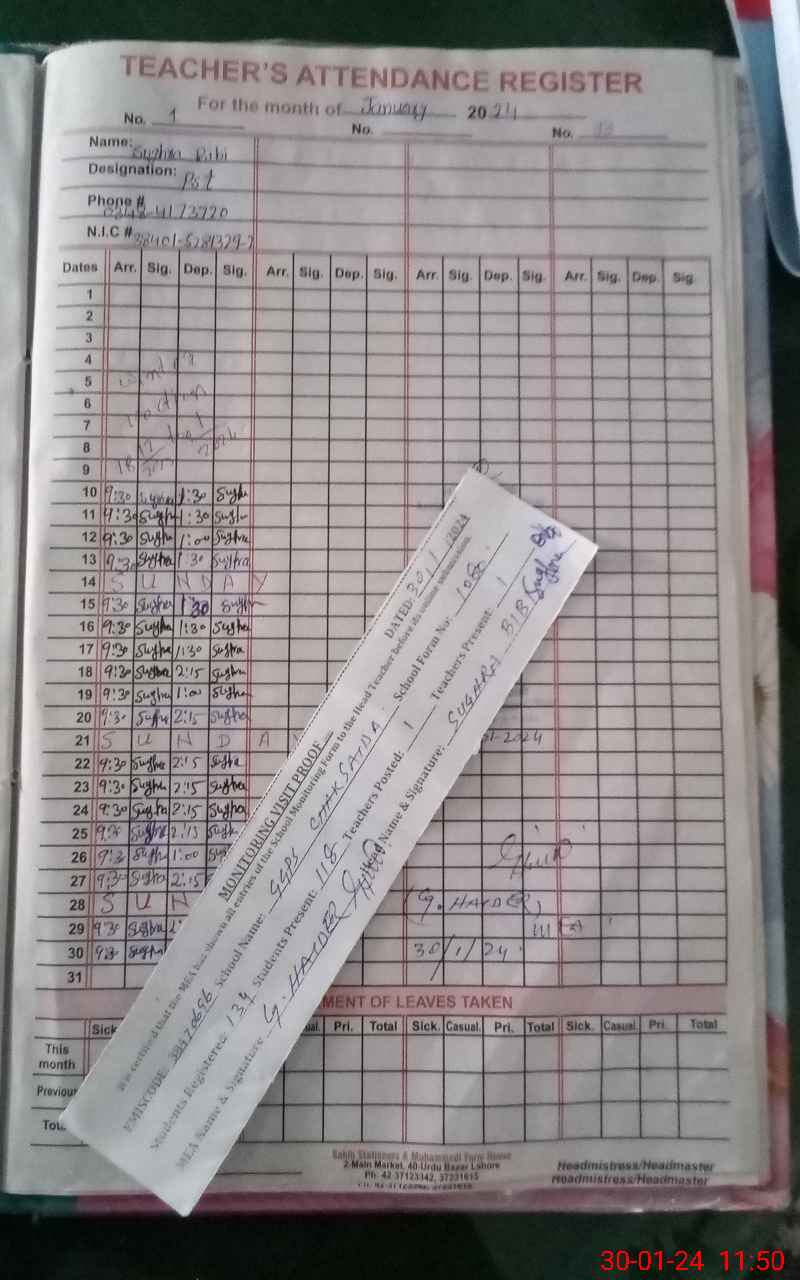 TEACHER'S ATTENDANCE REGISTER
For the month of January 2024
No. 1 No. No.
Name: Sughra Bibi
Designation: Pst
Phone #
N.I.C #
Dates Arr. Sig. Dep. Sig. Arr. Sig. Dep. Sig. Arr. Sig. Dep. Sig. Arr. Sig. Dep. Sig.
1
2
3
4
5 winter
6
7 vacation
8
9
10 9:30 Sughra 1:30 Sughra
11 9:30 Sughra 1:30 Sughra
12 9:30 Sughra 1:00 Sughra
13 9:30 Sughra 1:30 Sughra
14 S U N D A Y
15 9:30 Sughra 1:30 Sughra
16 9:30 Sughra 1:30 Sughra
17 9:30 Sughra 1:30 Sughra
18 9:30 Sughra 2:15 Sughra
19 9:30 Sughra 1:00 Sughra
20 9:30 Sughra 2:15 Sughra
21 S U N D A -2024
22 9:30 Sughra 2:15 Sughra
23 9:30 Sughra 2:15 Sughra
24 9:30 Sughra 2:15 Sughra
25 9:30 Sughra 2:15 Sughra
26 9:30 Sughra 1:00
27 9:30 Sughra 2:15
28 S U N (G. HAIDER)
29 9:30 Sughra
30 9:30 Sughra 30/1/24
31
MENT OF LEAVES TAKEN
Sick Pri. Total Sick. Casual. Pri. Total Sick. Casual. Pri. Total
This month
Previous
Tot
Sahib Stationers & Muhammadi Form House
2-Main Market, 40-Urdu Bazar Lahore
Ph: 42-37123342, 37231615
Headmistress/Headmaster
Headmistress/Headmaster
MONITORING VISIT PROOF DATED: 30/1/2024
It is certified that the MEA has shown all entries of the School Monitoring Form to the Head Teacher before its online submission.
EMISCODE: School Name: GGPS CHAK SAIDA School Form No: 1080
Students Registered: 134 Students Present: 118 Teachers Posted: 1 Teachers Present: 1
MEA Name & Signature G. HAIDER Head Name & Signature: SUGHRA BIBI Sughra
30-01-24 11:50